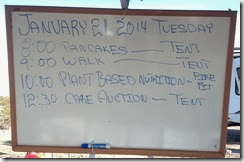 JANUARY 21 2014 TUESDAY
8:00 PANCAKES — TENT
9:00 WALK — TENT
10:00 PLANT BASED NUTRITION - FIRE PIT
12:30 CAKE AUCTION — TENT